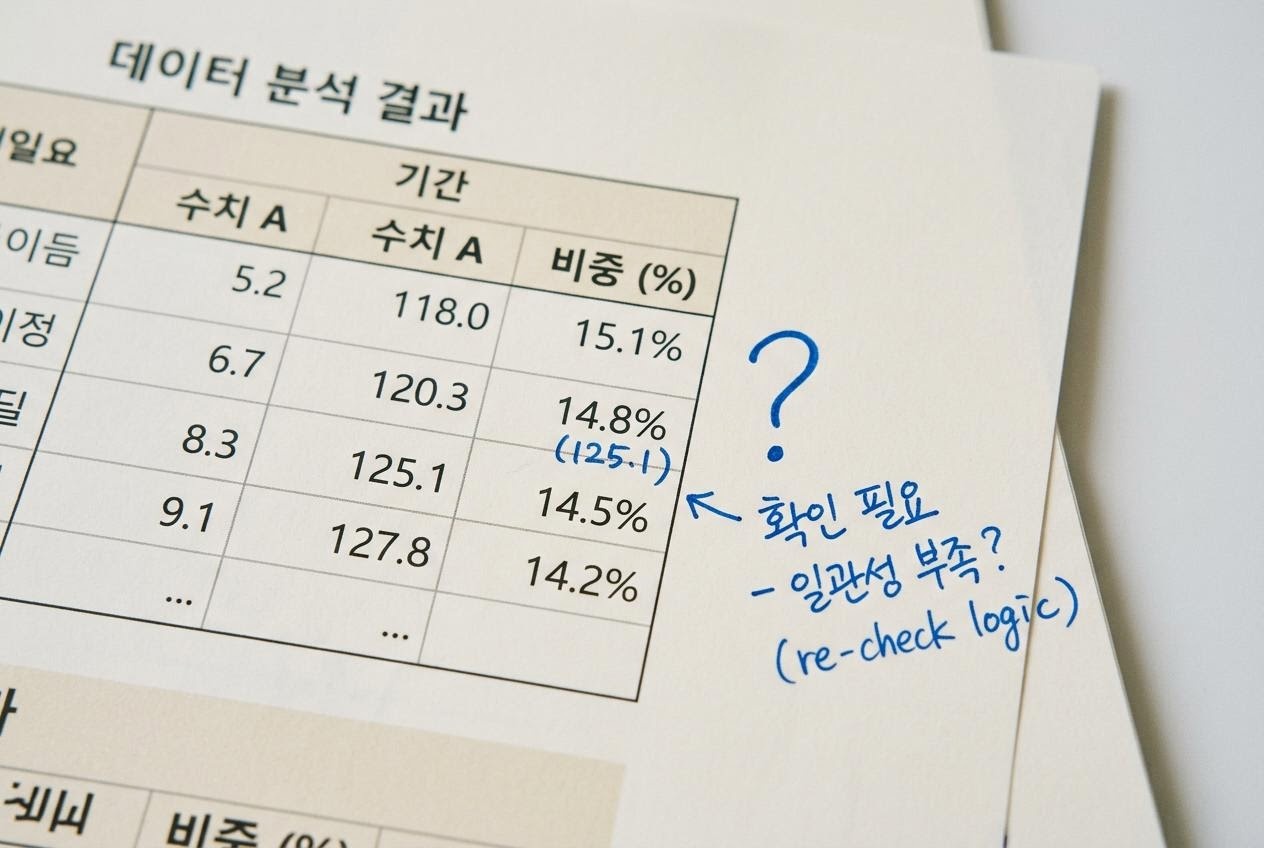 데이터 분석 결과
일요 기간
수치 A 수치 A 비중 (%)
이듬 5.2 118.0 15.1%
이정 6.7 120.3 14.8%
(125.1)
딜 8.3 125.1 14.5%
9.1 127.8 14.2%
... ...
?
확인 필요
- 일관성 부족?
(re-check logic)
비중 (%)